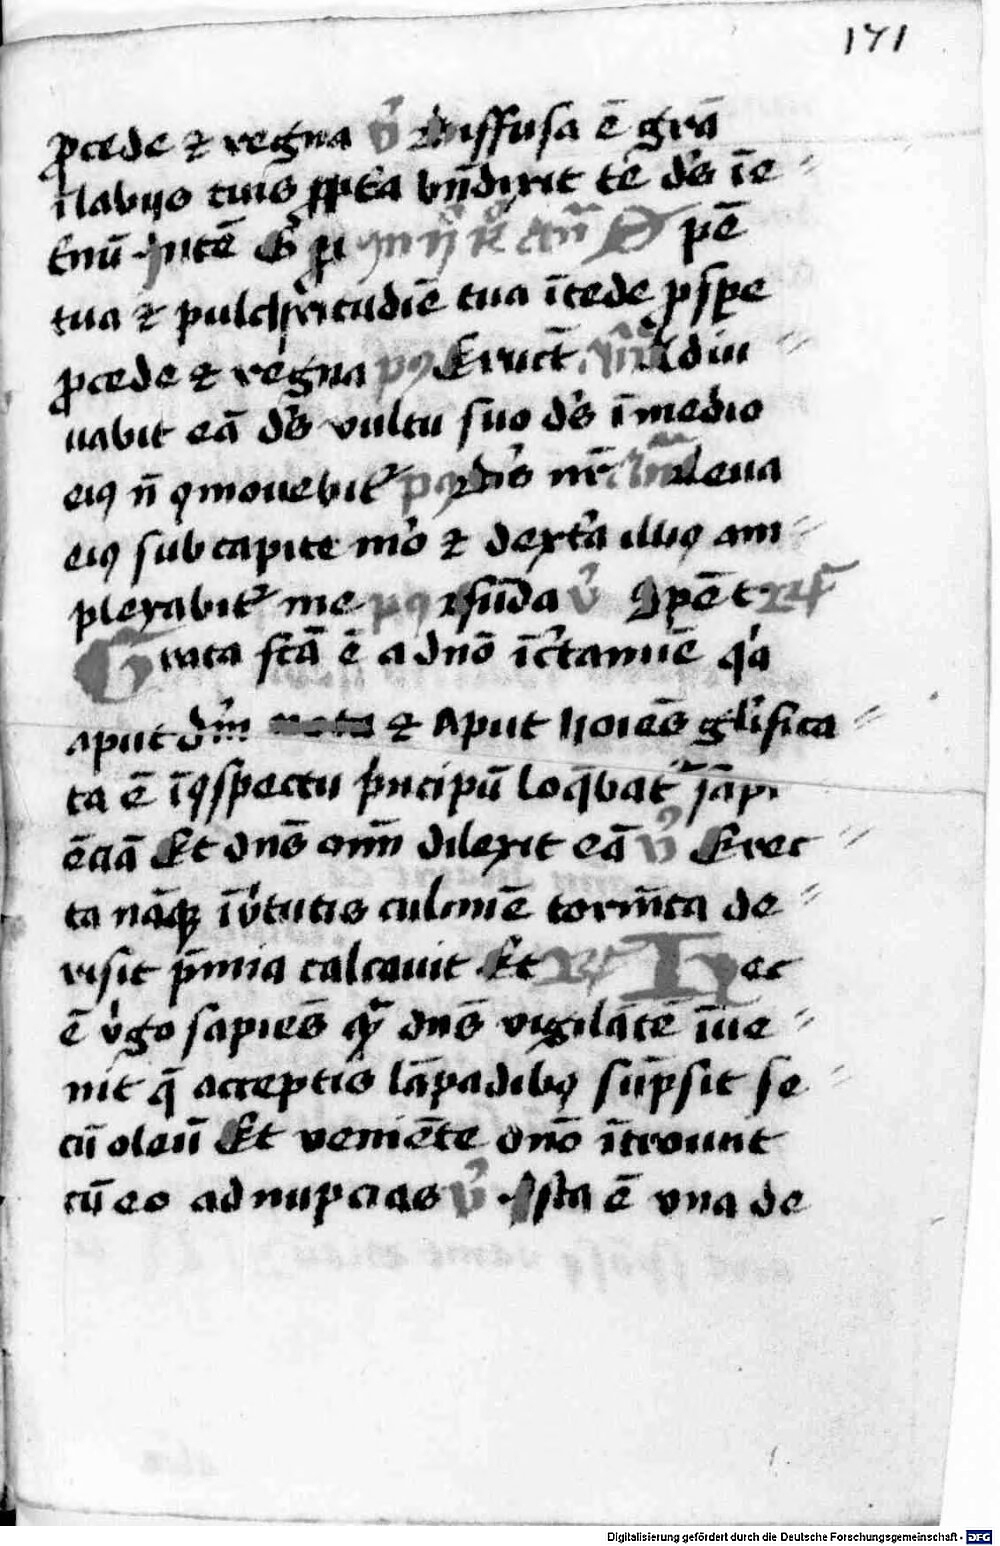 171
ꝓcede ⁊ regna v̉ Diffusa ē grā
ī labijs tuis ꝓpt̉a bn̄dixit te ds̉ ī e
t̉nū
tua ⁊ pulchritudīe tua ītede ꝓspe
ꝓcede ⁊ regna pꝰ Eruct̄ Adiu
uabit eā ds̉ vultu suo ds̉ ī medio
eiꝰ nō ꝯmouebit᷑ pꝰ ds̉ nr̄ leua
eiꝰ sub capite m̉o ⁊ dext̉a illiꝰ am
plexabit᷑ me pꝰ v̉
Grata fcā ē a dnō ī c̉tamīe q̉a
aput dm̄ ⁊ Aput hoīes gl̉ifica
ta ē īꝯspectu pn̉cipū loq̄bat᷑ sapi
ēciā Et dns̄ om̄ dilexit eā v̉ Erec
ta nāqꝫ ī v̉tutis culmīe torm̄ta de
risit p̄mia calcauit Et R̸ Hec
ē v̉go sapiēs q̄ dns̄ vigilātē īue
nit q̄ acceptis lāpadibꝰ sūpsit se
cū oleū Et veniēte dnō ītrouit
cū eo ad nupcias v̉ Ista ē vna de
Digitalisierung gefördert durch die Deutsche Forschungsgemeinschaft - DFG